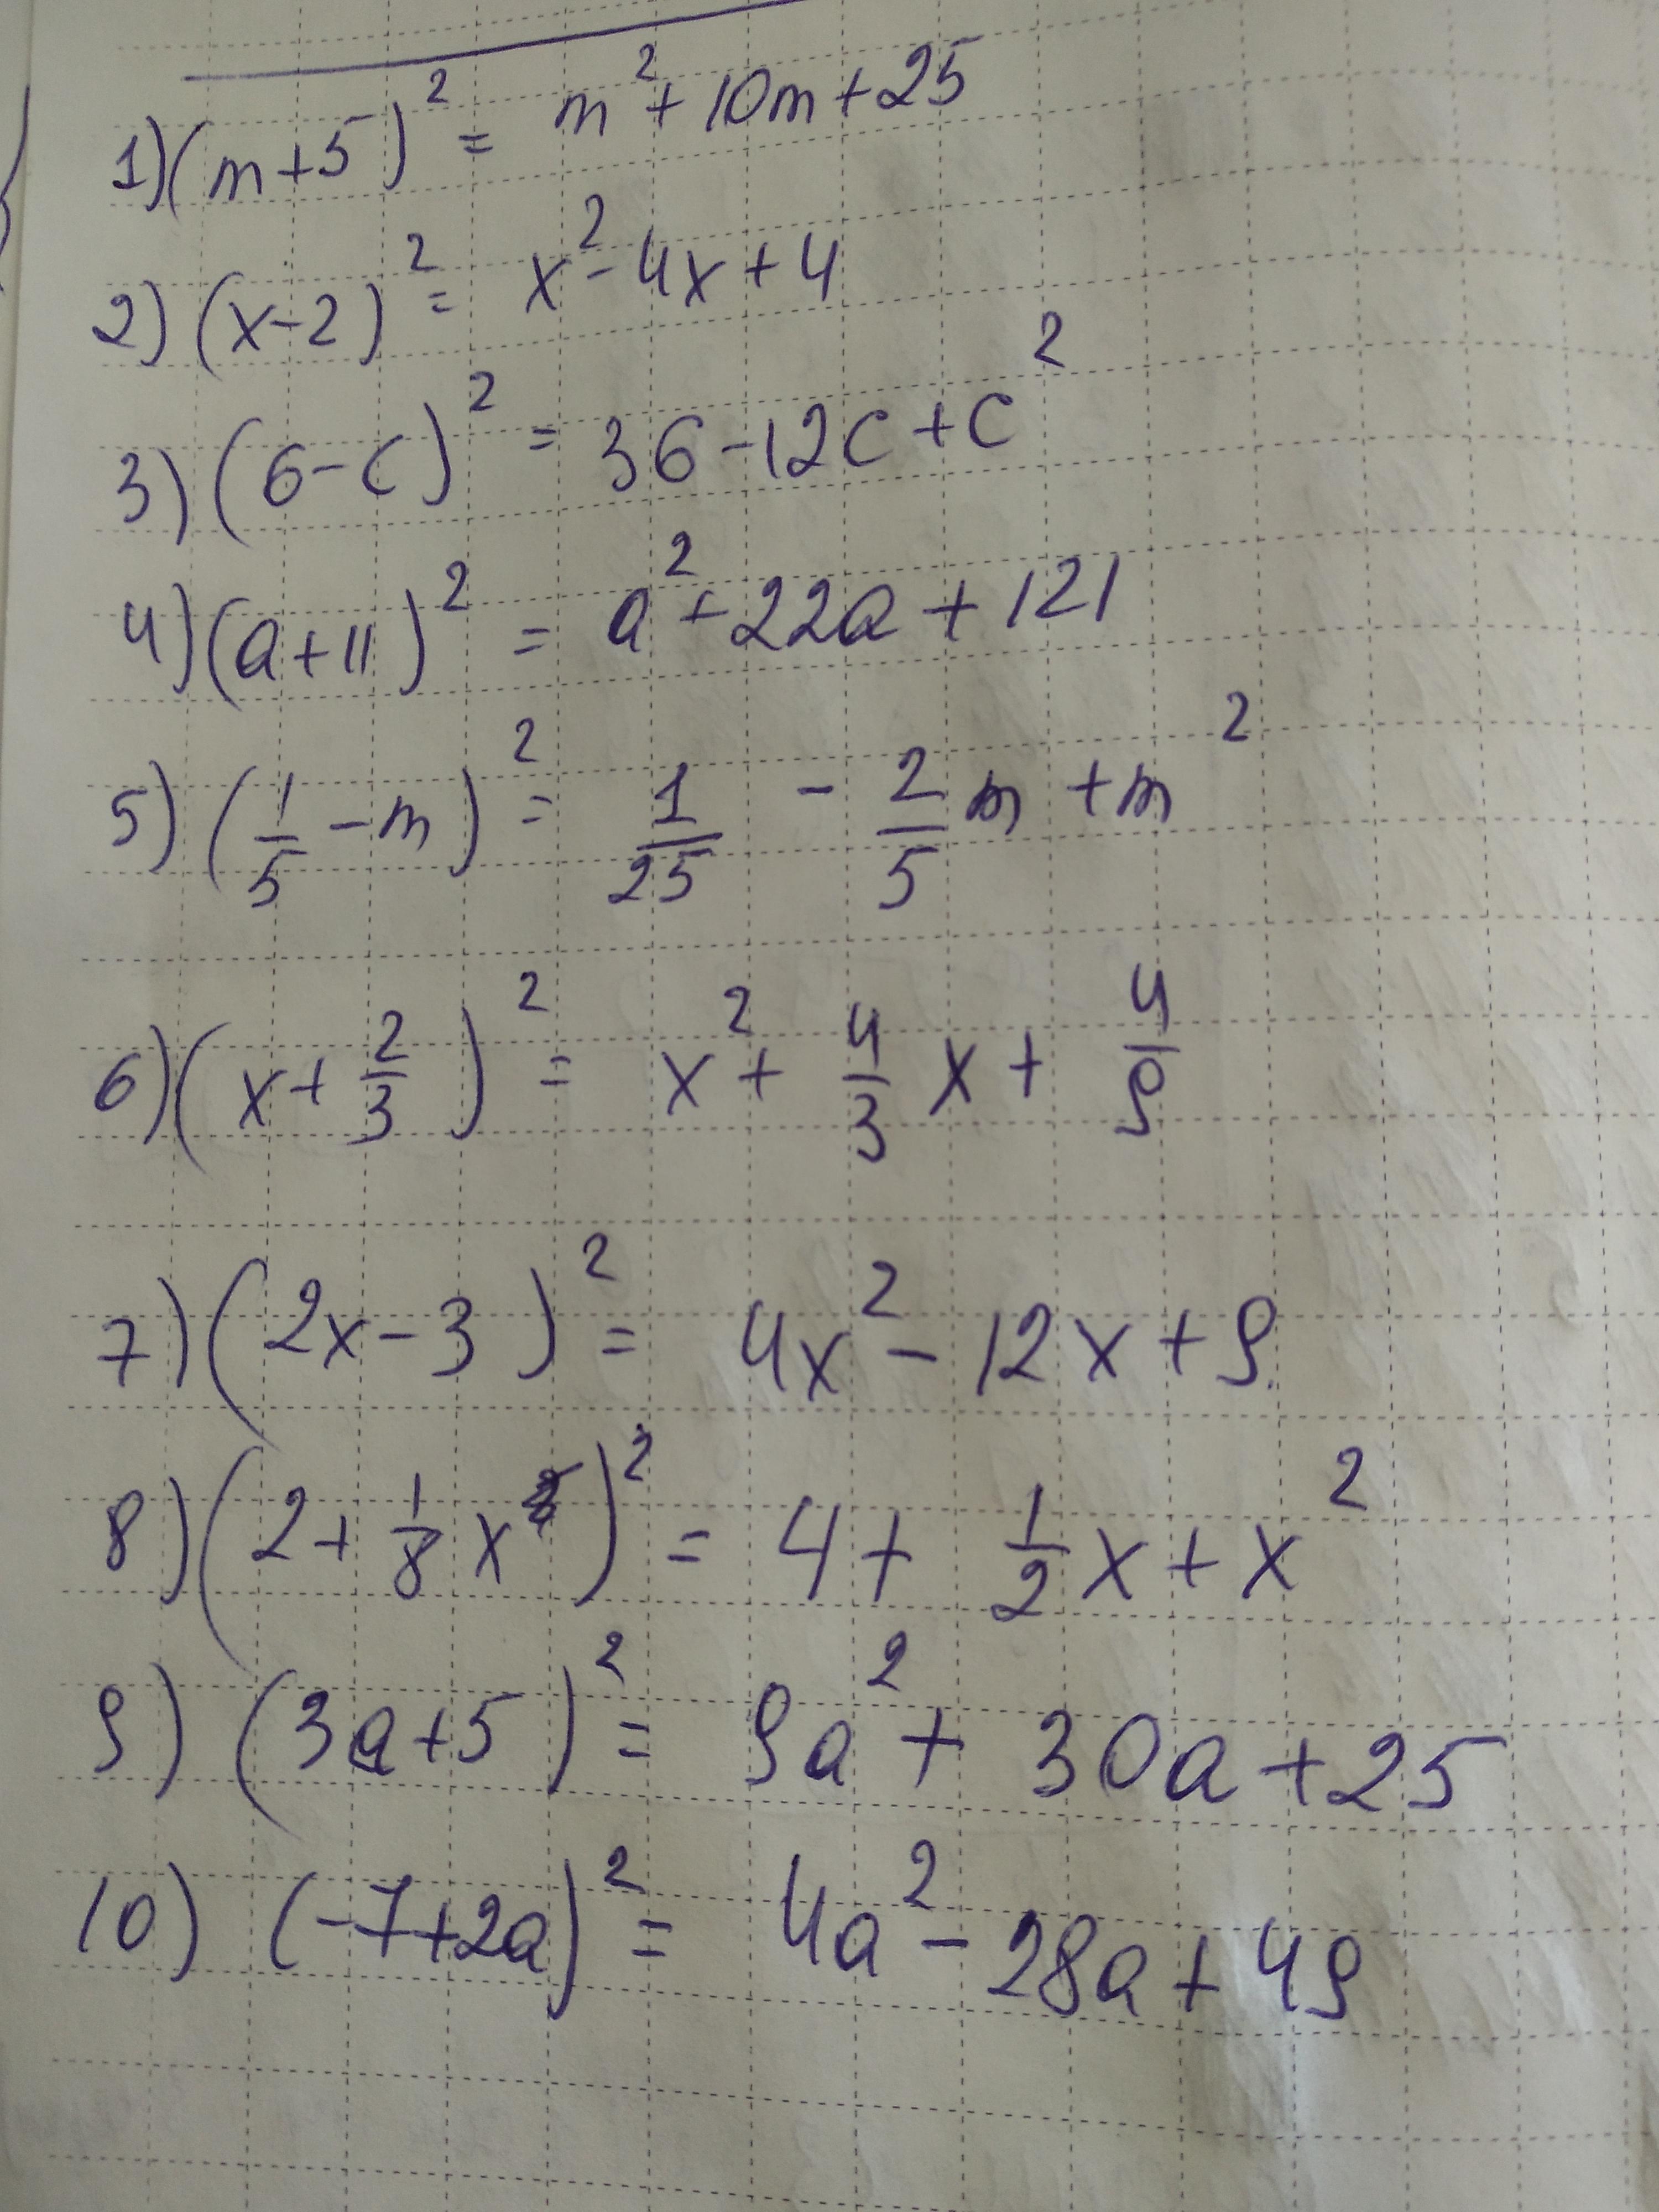 1) (m+5)² = m² + 10m + 25
2) (x-2)² = x² - 4x + 4
3) (6-c)² = 36 - 12c + c²
4) (a+11)² = a² + 22a + 121
5) (1/5 - m)² = 1/25 - 2/5 m + m²
6) (x + 2/3)² = x² + 4/3 x + 4/9
7) (2x-3)² = 4x² - 12x + 9
8) (2 + 1/8 x)² = 4 + 1/2 x + x²
9) (3a+5)² = 9a² + 30a + 25
10) (-7+2a)² = 4a² - 28a + 49